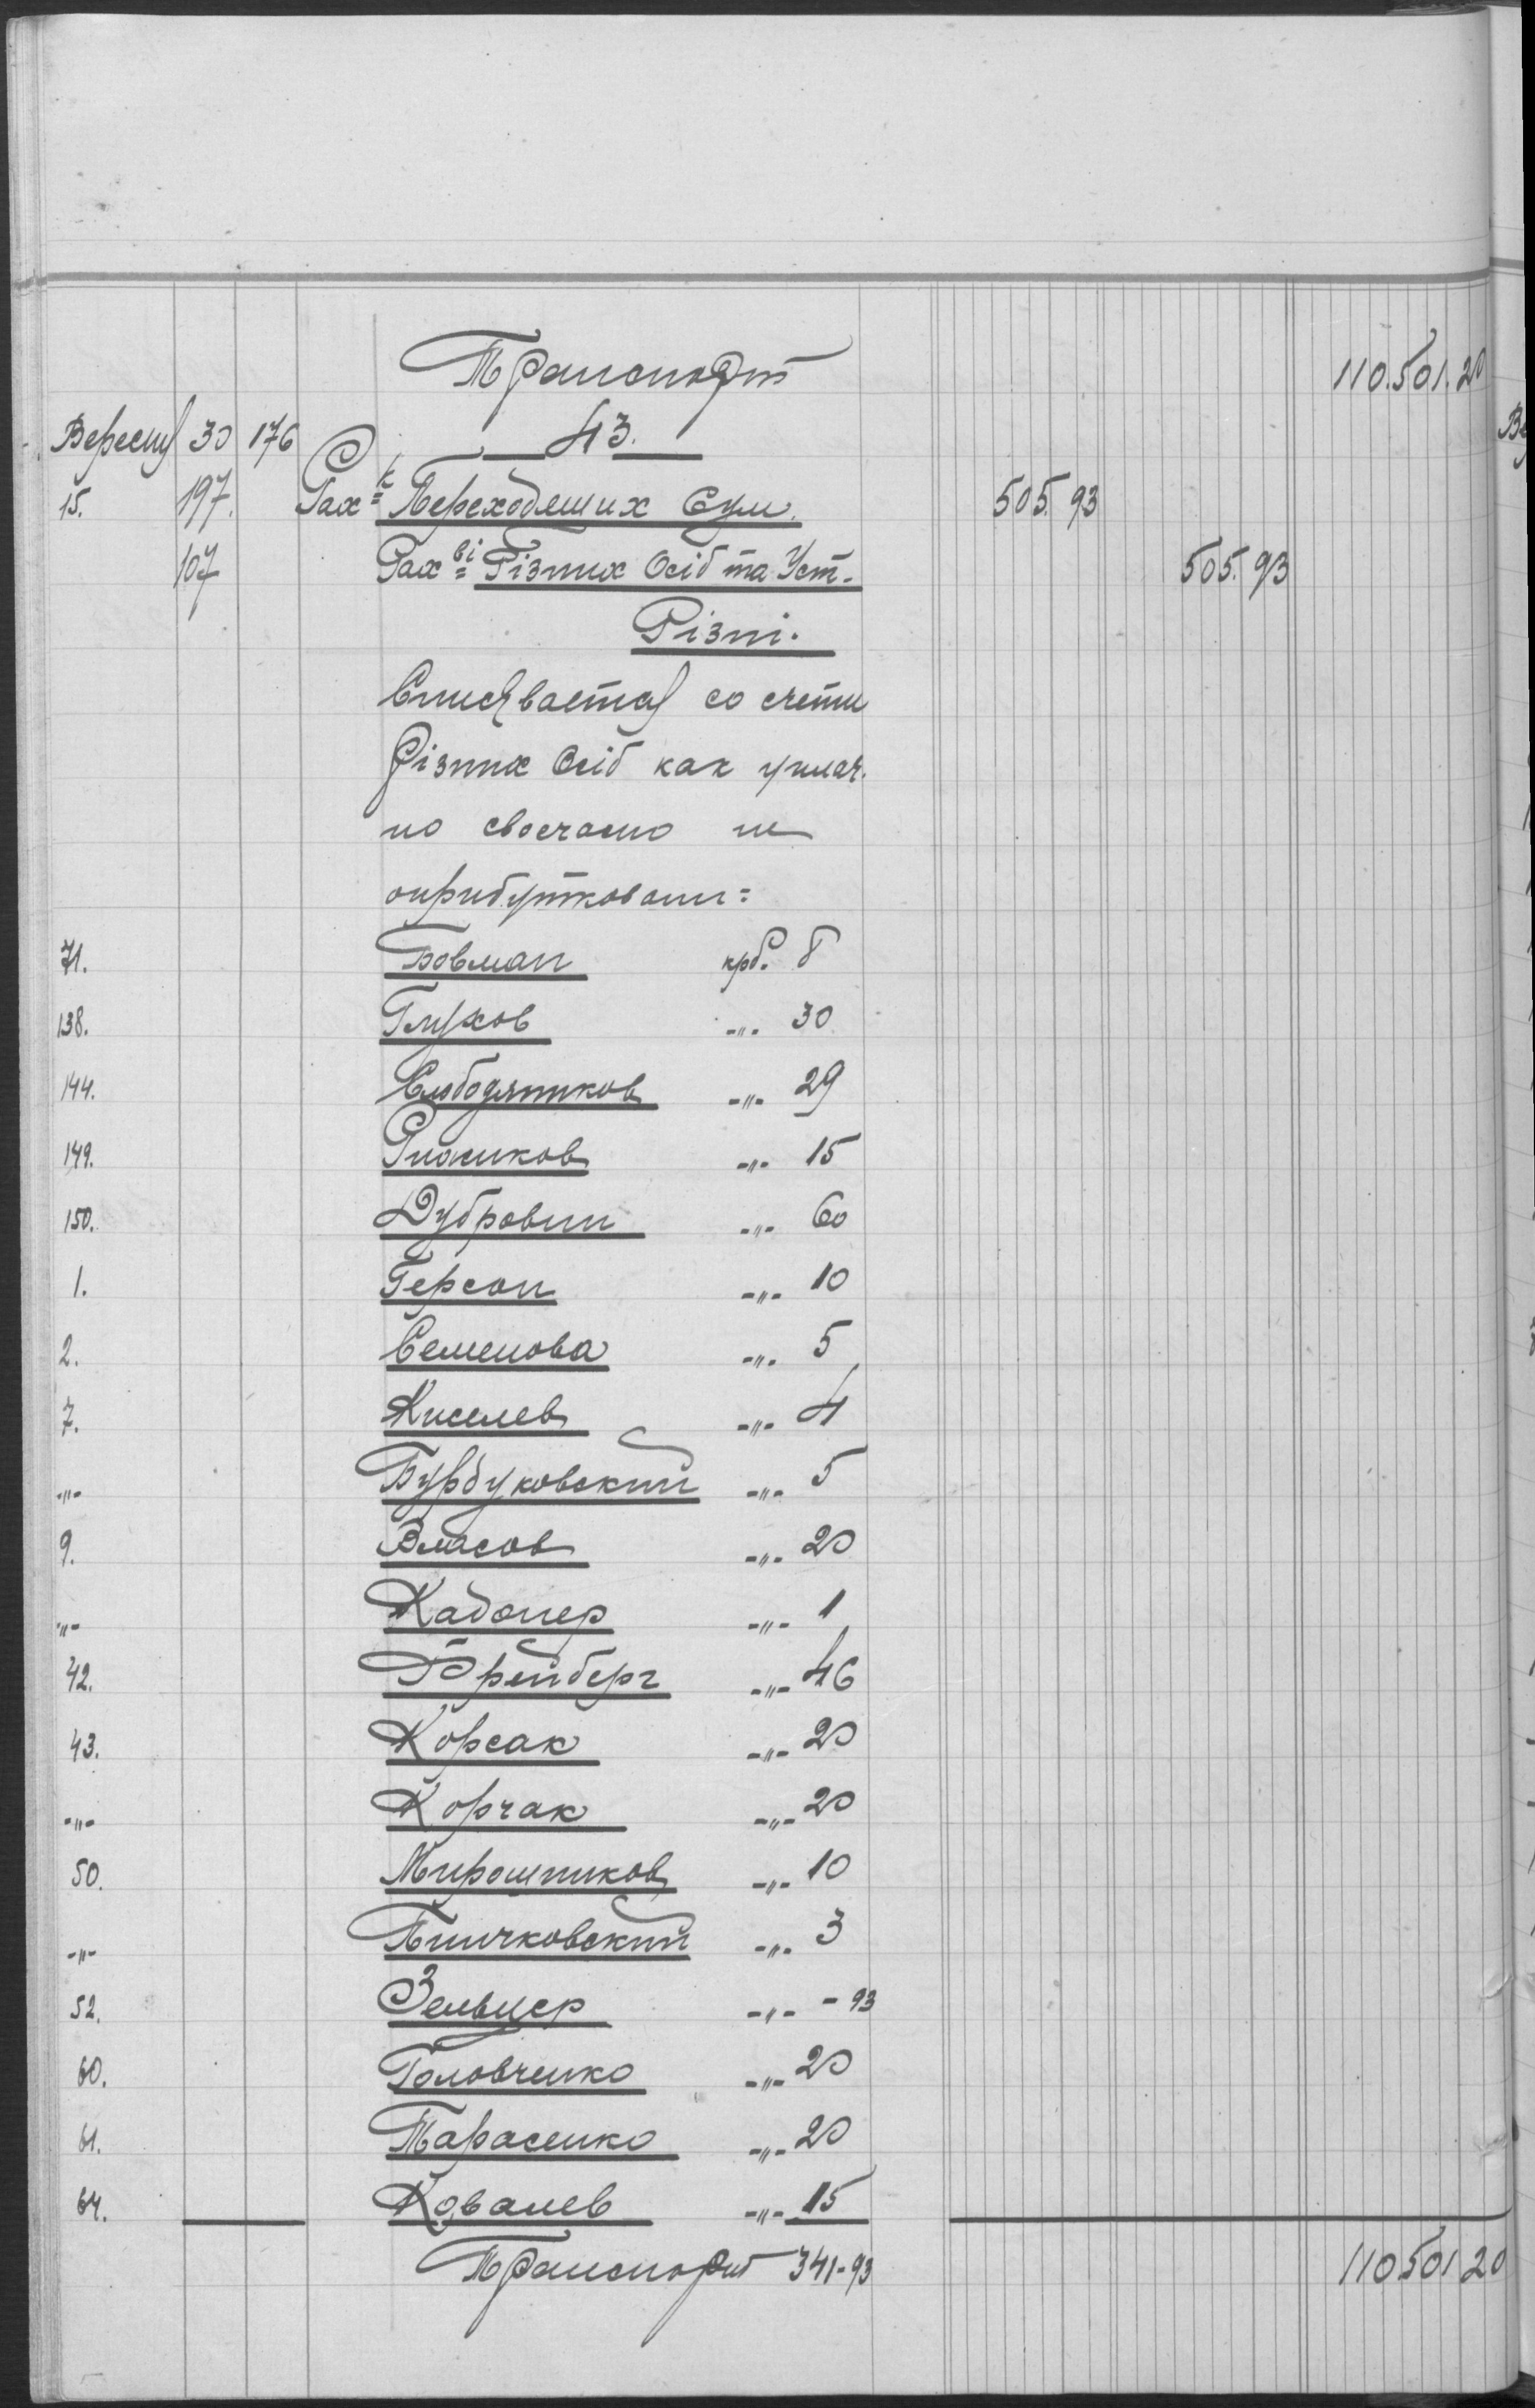 Транспорт 110.501.20
Вересня 30 176 43.
15. 197. Рах-к Переходящих Сум. 505. 93
107 Рах-ві Різних Осіб та Уст. 505. 93
Різні.
Списується со счета
Різних Осіб как уплач.
но своечасно не
оприбутковани=
71. Бовман крб. 8
138. Глухов -"- 30
144. Слободяников -"- 29
149. Рижиков -"- 15
150. Дубровин -"- 60
1. Герсон -"- 10
2. Семенова -"- 5
7. Киселев -"- 4
-"- Бурдуковский -"- 5
9. Власов -"- 20
-"- Кадонер -"- 1
42. Фрейберг -"- 46
43. Корсак -"- 20
-"- Корчак -"- 20
50. Мирошников -"- 10
-"- -"- 3
52. Зельцер -"- - 93
60. Головченко -"- 20
61. Тарасенко -"- 20
64. Ковалев -"- 15
Транспорт 341-93 110501 20